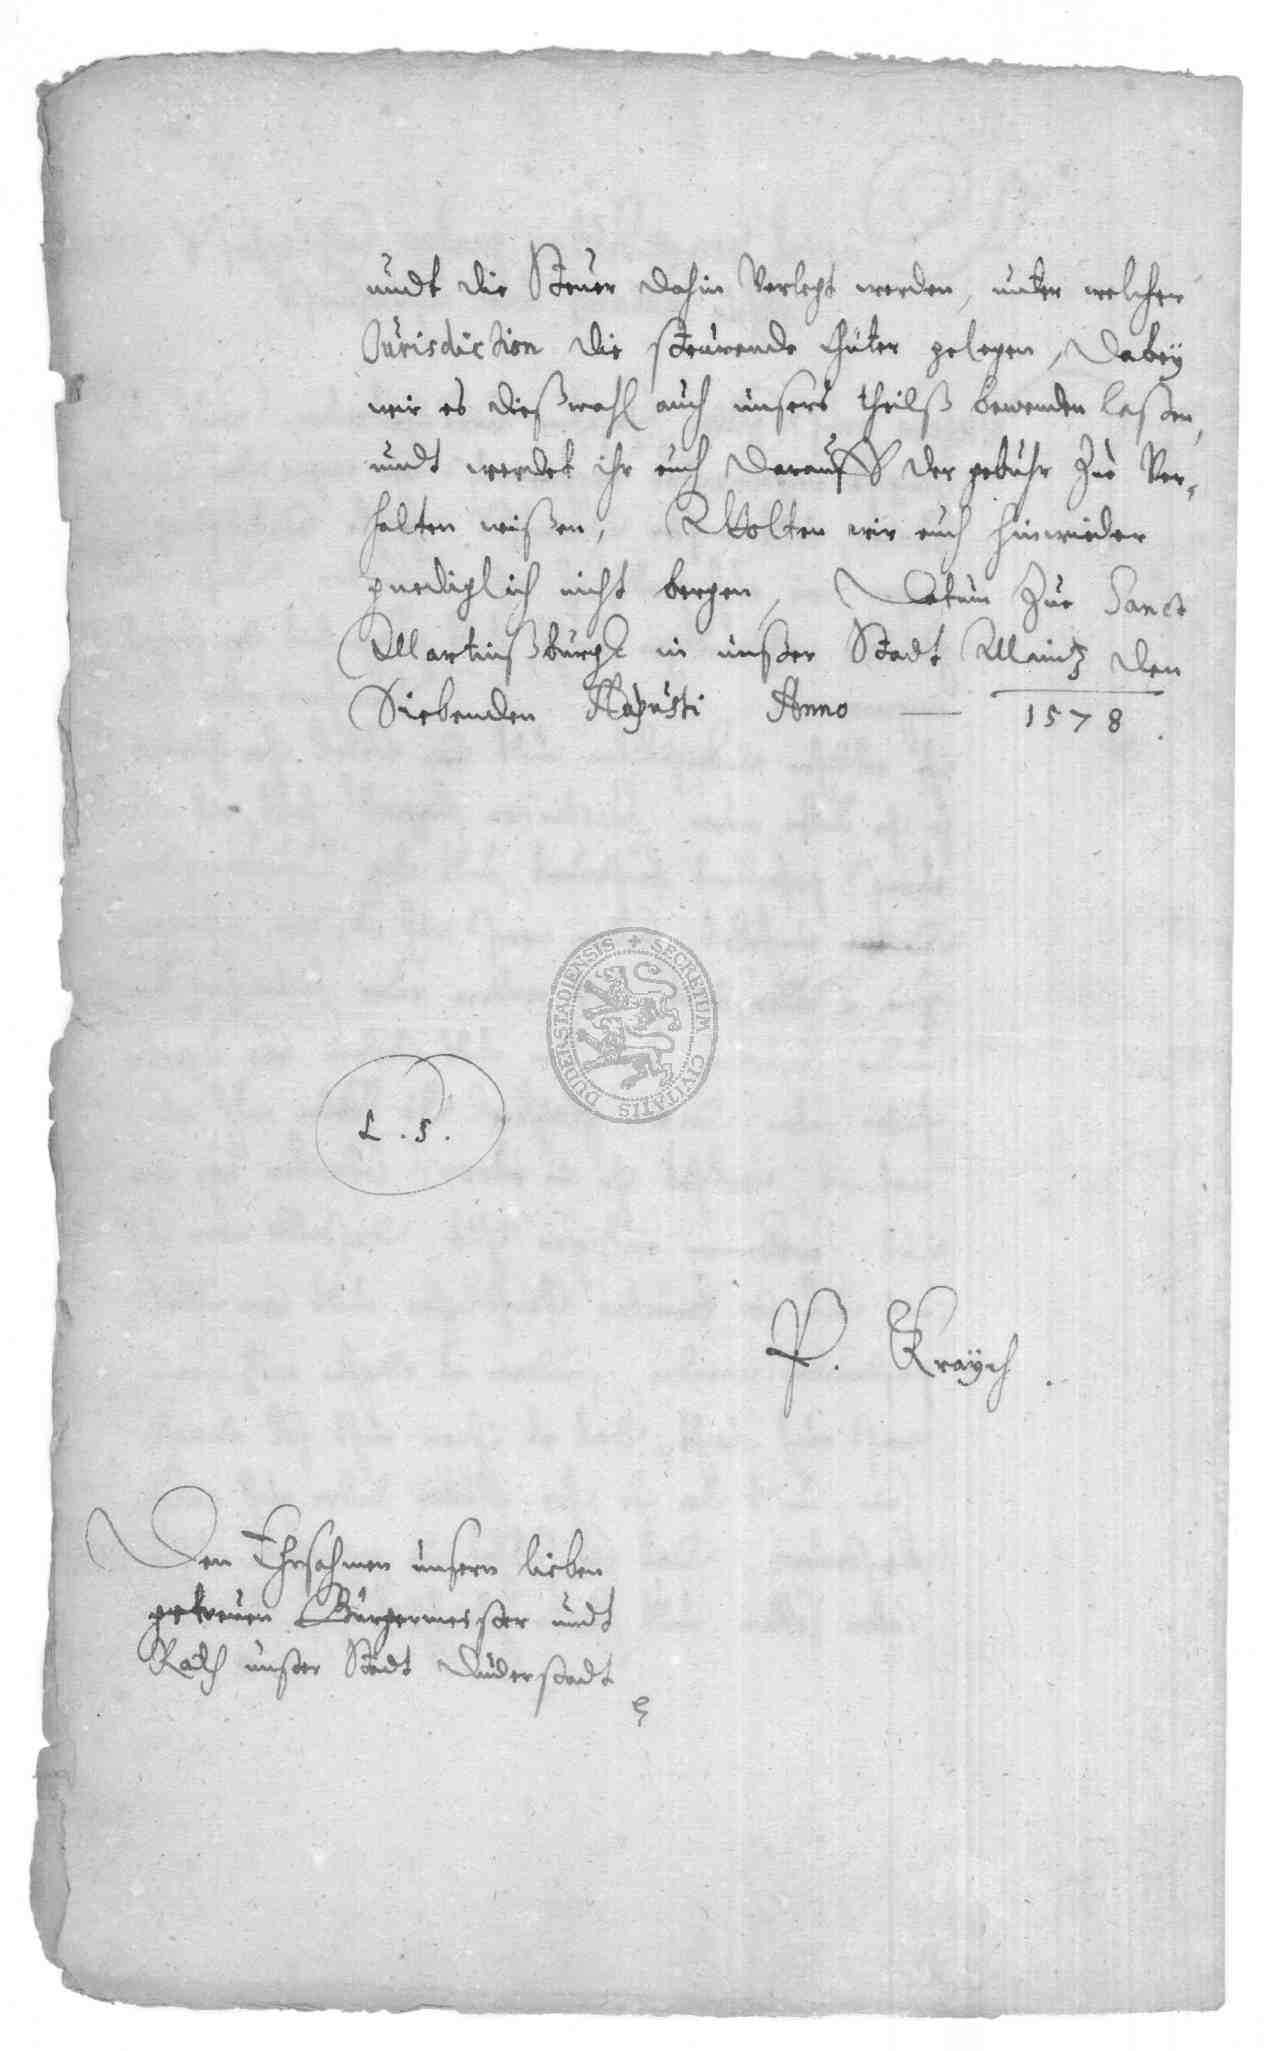 undt die Steuer dahin verlegt werden, unter welcher
Jurisdiction die steurende Güter gelegen, Dabey
wir es dießmahl auch unsers theilß bewenden laßen,
undt werdet ihr euch darauff der gebuhr zue Ver-
halten wißen, Wolten wir euch hinwieder
gnediglich nicht bergen, Datum zue Sanct
Martinßburgk in unßer Stadt Maintz den
Siebenden Augusti Anno — 1578.
DUDERSTADIENSIS + SECRETUM CIVITATIS
L. S.
P. Kraÿch.
Den Ehrsahmen unsern lieben
getreuen Bürgermeister undt
Rath unßer Stadt Duderstadt